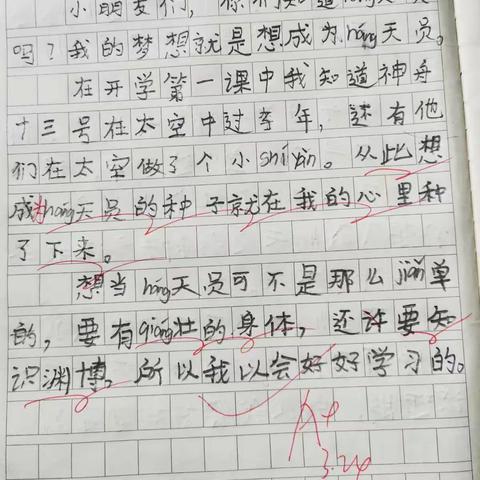 小朋友们，你们知道háng天员
吗？我的梦想就是想成为háng天员。
在开学第一课中我知道神舟
十三号在太空中过年，还有他
们在太空做了个小shíyàn。从此想
成为háng天员的种子就在我的心里种
了下来。
想当háng天员可不是那么jiǎn单
的，要有qiáng壮的身体，还许要知
识渊博，所以我以会好好学习的。
A+
3.24